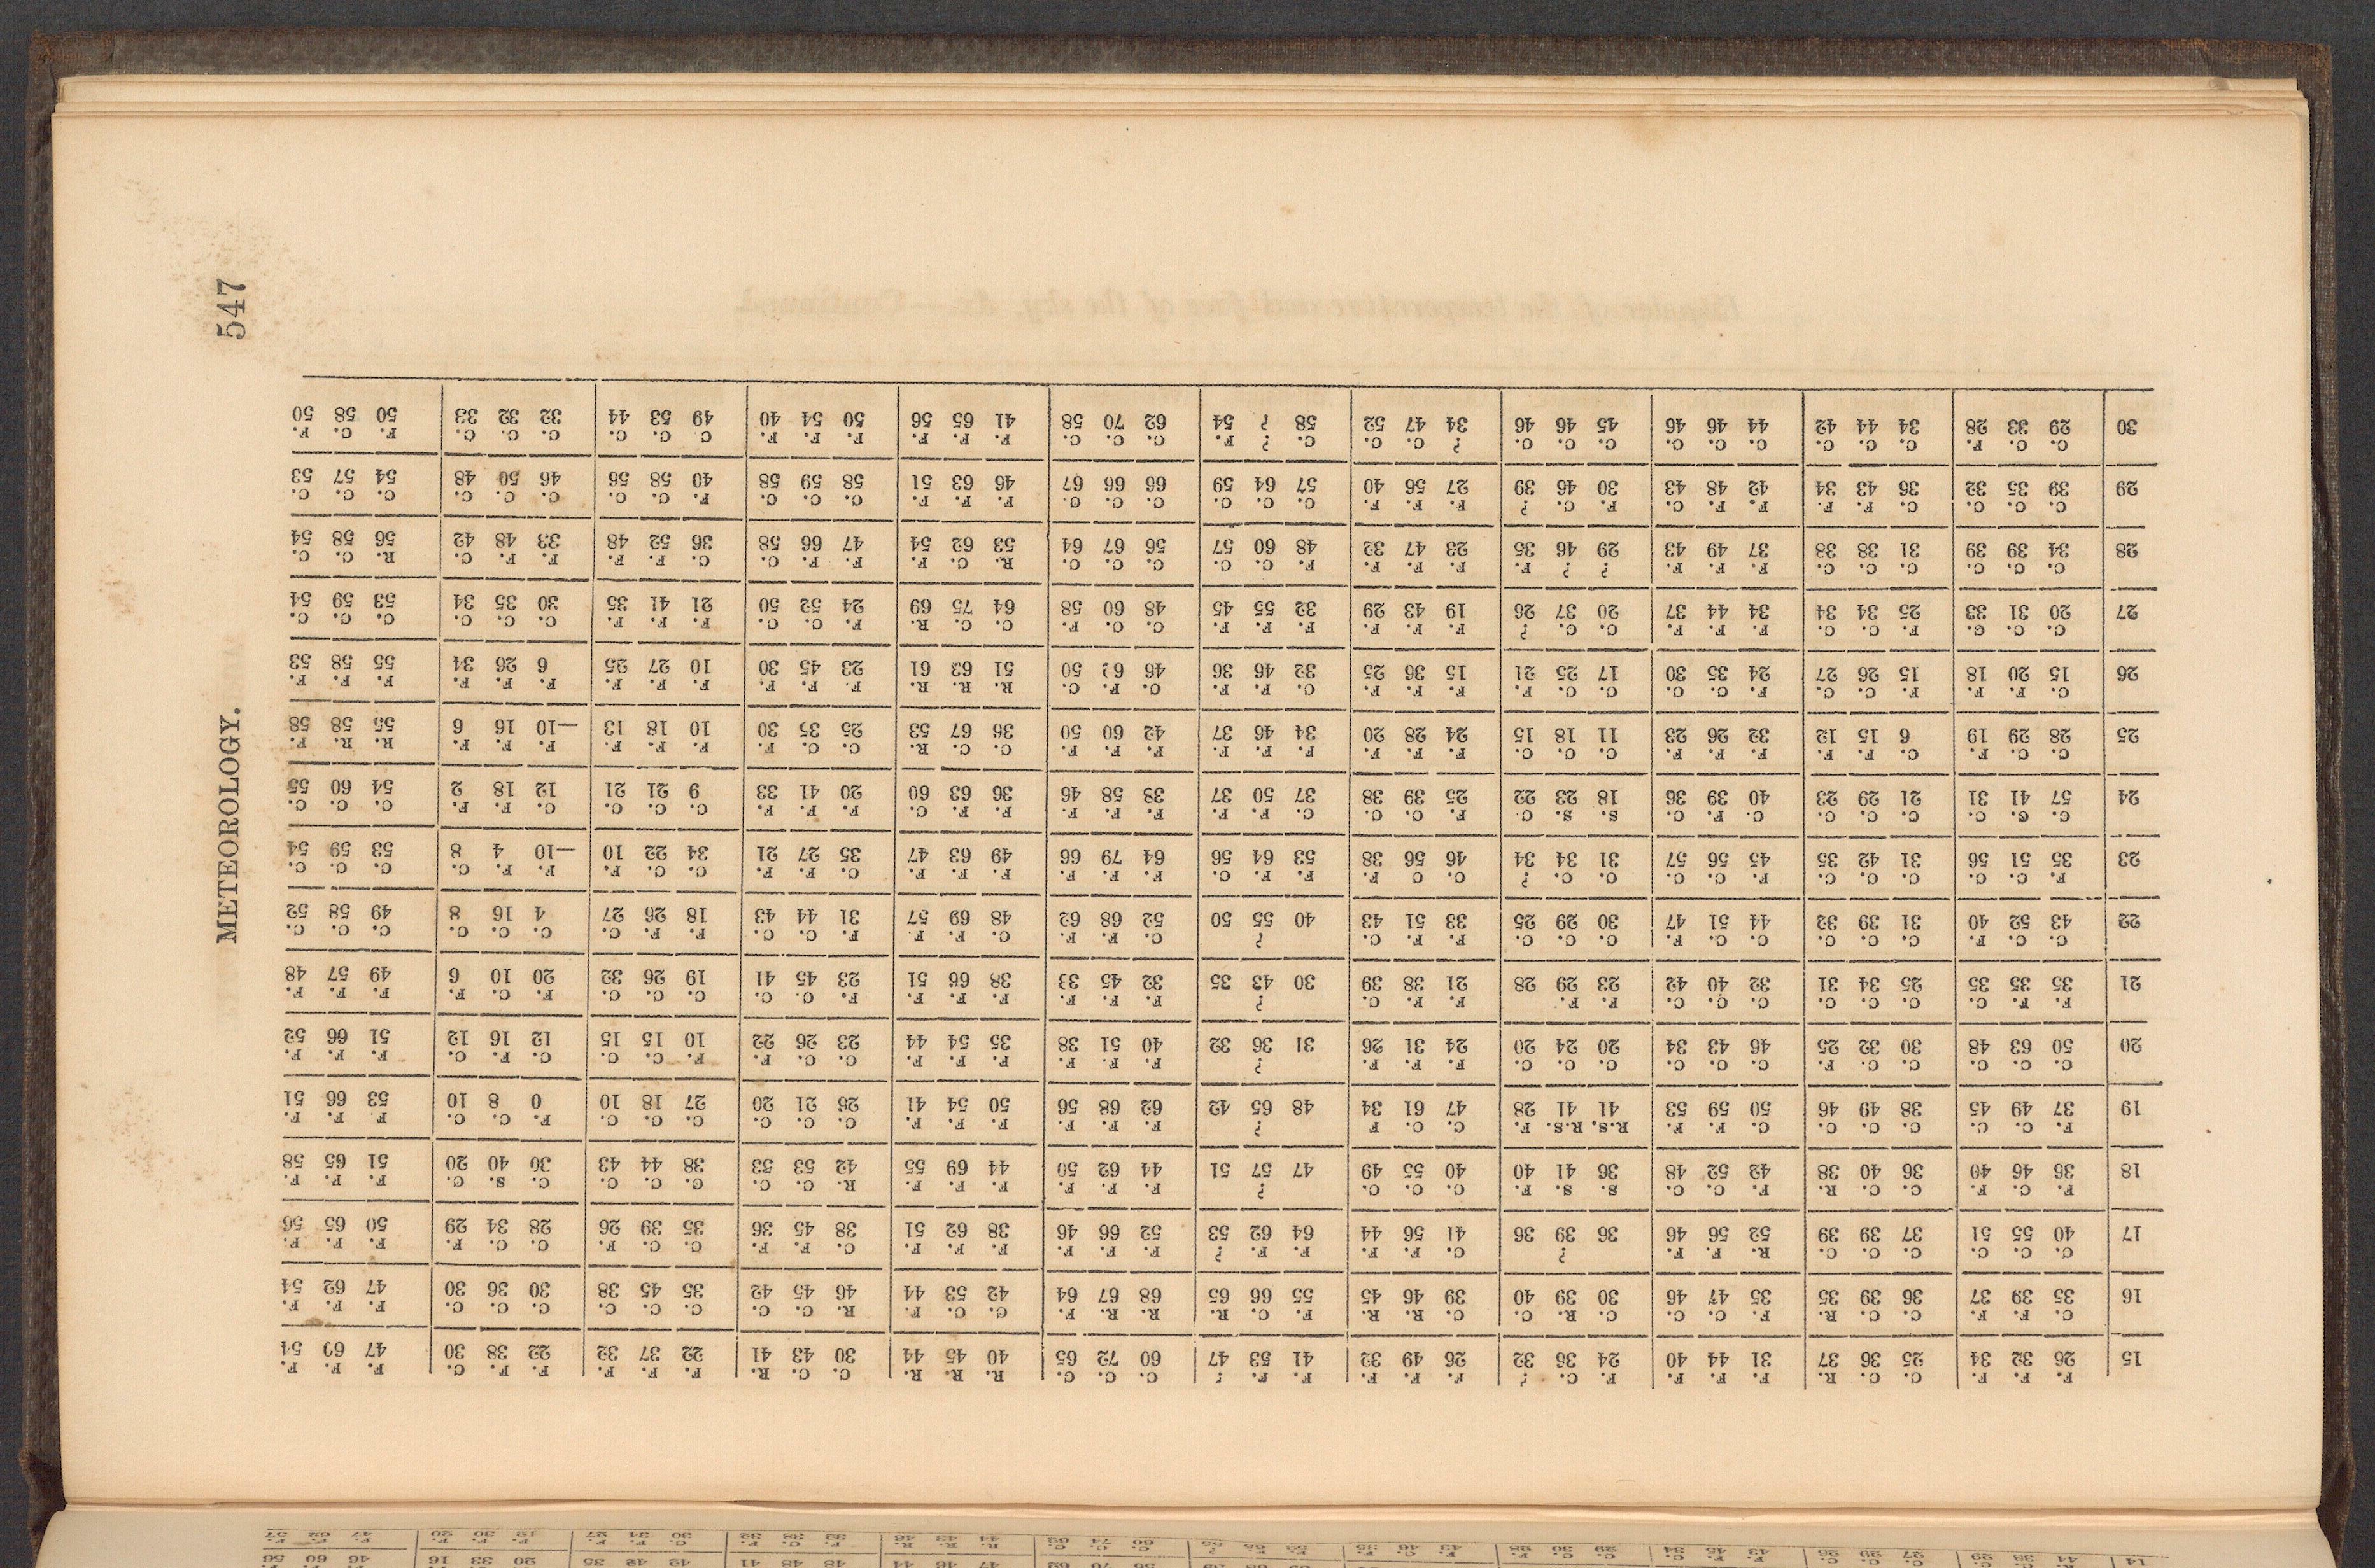 METEOROLOGY. 547
F. F. F. C. C. R. F. F. F. F. C. ? F. F. F. F. F. ? C. C. C. R. R. R. C. C. R. F. F. F. F. F. C. F. F. F.
15 26 32 34 25 36 37 31 44 40 24 36 32 26 49 32 41 53 47 60 72 65 40 45 44 30 43 41 22 37 32 22 38 30 47 60 54
C. F. F. C. C. R. F. C. C. C. R. C. C. R. R. F. C. R. R. R. F. C. C. F. R. C. C. C. C. C. C. C. C. F. F. F.
16 35 39 37 36 39 35 35 47 46 30 39 40 39 46 45 55 66 65 68 67 64 42 53 44 46 45 42 35 45 38 30 36 30 47 62 54
C. C. C. C. C. C. R. F. F. ? C. F. F. F. F. ? F. F. F. F. F. F. C. F. F. C. C. F. C. C. F. F. F. F.
17 40 55 51 37 39 39 52 56 46 36 39 36 41 56 44 64 62 53 52 66 46 38 62 51 38 45 36 35 39 26 28 34 29 50 65 56
F. C. F. C. C. R. F. C. C. S. S. F. C. C. C. ? F. F. F. F. F. F. R. C. C. C. C. C. C. S. C. F. F. F.
18 36 46 40 36 40 38 42 52 48 36 41 40 40 55 49 47 57 51 44 62 50 44 69 55 42 53 53 38 44 43 30 40 20 51 65 58
F. C. C. C. C. C. C. F. F. R.S. R.S. F. C. C. F ? F. F. F. F. F. F. C. C. C. C. C. C. F. C. C. F. F. F.
19 37 49 45 38 49 46 50 59 53 41 41 28 47 61 34 48 65 42 62 68 56 50 54 41 26 21 20 27 18 10 0 8 10 53 66 51
C. C. C. C. C. F. C. C. C. C. C. C. F. F. F. ? F. F. F. F. F. F. C. C. F. F. C. C. C. F. C. F. F. F.
20 50 63 48 30 32 25 46 43 34 20 24 20 24 31 26 31 36 32 40 51 38 35 54 44 23 26 22 10 15 15 12 16 12 51 66 52
F. F. C. C. C. C. C. C. C. F. F. F. F. C. ? F. F. F. F. F. F. F. C. C. C. C. C. F. C. F. F. F. F.
21 35 35 35 25 34 31 32 40 42 23 29 28 21 38 39 30 43 35 32 45 33 38 66 51 23 45 41 19 26 32 20 10 6 49 57 48
C. C. F. C. C. C. C. C. F. C. C. C. F. F. C. ? C. F. F. C. F. F. F. C. C. F. F. C. C. C. C. C. C. C.
22 43 52 40 31 39 32 44 51 47 30 29 25 33 51 43 40 55 50 52 68 62 48 69 57 31 44 43 18 26 27 4 16 8 49 58 52
F. C. C. C. C. C. F. C. C. C. C. ? C. C F. F. F. C. F. F. F. F. F. F. C. F. F. C. C. F. F. F. C. C. C. C.
23 35 51 56 31 42 35 45 56 57 31 34 34 46 56 38 53 64 56 64 79 66 49 63 47 35 27 21 34 22 10 —10 4 8 53 59 54
C. C. C. C. C. C. C. F. C. S. S. C. F. C. C. C. F. F. F. F. F. F. F. C. F. F. F. C. C. C. C. F. F. C. C. C.
24 57 41 31 21 29 23 40 39 36 18 23 22 25 39 38 37 50 37 38 58 46 36 63 60 20 41 33 9 21 21 12 18 2 54 60 55
C. C. F. C. F. F. F. F. F. C. C. C. F. F. F. F. F. F. F. F. F. C. C. R. C. C. F. F. F. F. F. F. F. R. R. F.
25 28 29 19 6 15 12 32 26 23 11 18 15 24 28 20 34 46 37 42 60 50 36 67 53 25 35 30 10 18 13 —10 16 6 55 58 58
C. F. F. F. C. C. F. C. C. C. C. F. F. F. F. C. F. F. C. F. C. R. R. R. F. F. F. F. F. F. F. F. F. F. F. F.
26 15 20 18 15 26 27 24 35 30 17 25 21 15 36 25 32 46 36 46 62 50 51 63 61 23 45 30 10 27 25 6 26 34 55 58 53
C. C. C. F. C. C. F. F. F. C. C. ? F. F. F. F. F. F. C. C. F. C. C. R. F. C. C. F. F. F. C. C. C. C. C. C.
27 20 31 33 25 34 34 34 44 37 20 37 26 19 43 29 32 55 45 48 60 58 64 75 69 24 52 50 21 41 35 30 35 34 53 59 54
C. C. C. C. C. C. F. F. F. ? ? F. F. F. F. F. C. C. C. C. C. R. C. F. F. F. C. C. F. F. F. F. C. R. C. C.
28 34 39 39 31 38 38 37 49 43 29 46 35 23 47 32 48 60 57 56 67 64 53 62 54 47 66 58 36 52 48 33 48 42 56 58 54
C. C. C. C. F. F. F. F. C. F. C. ? F. F. F. C. C. C. C. C. C. F. F. F. C. C. C. F. C. C. C. C. C. C. C. C.
29 39 35 32 36 43 34 42 48 43 30 46 39 27 56 40 57 64 59 66 66 67 46 63 51 58 59 58 40 58 56 46 50 48 54 57 53
C. C. F. C. C. C. C. C. C. C. C. C. ? C. C. C. ? F. C. C. C. F. F. F. F. F. F. C C. C. C. C. C. F. C. F.
30 29 33 28 34 44 42 44 46 46 45 46 46 34 47 52 58 ? 54 62 70 58 41 65 56 50 54 40 49 53 44 32 32 33 50 58 50